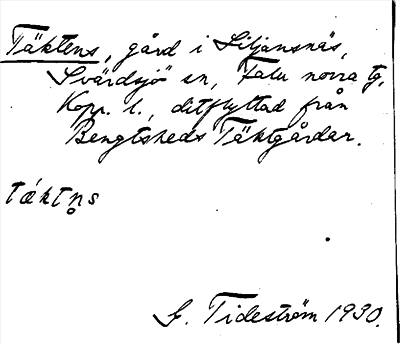 Täktens, gård i Liljansnäs,
Svärdsjö sn, Falu norra tg,
Kopp. l., ditflyttad från
Bengtsheds Täktgårdar.
tǽktn̥s
G. Tideström 1930.